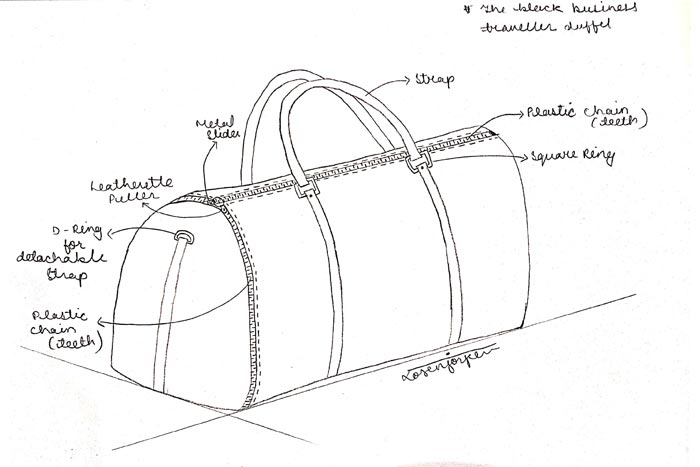 * The black business
traveller duffel
Strap
Metal
Slider
Plastic chain
(teeth)
Square Ring
Leatherette
Puller
D-Ring
for
detachable
Strap
Plastic
chain
(teeth)